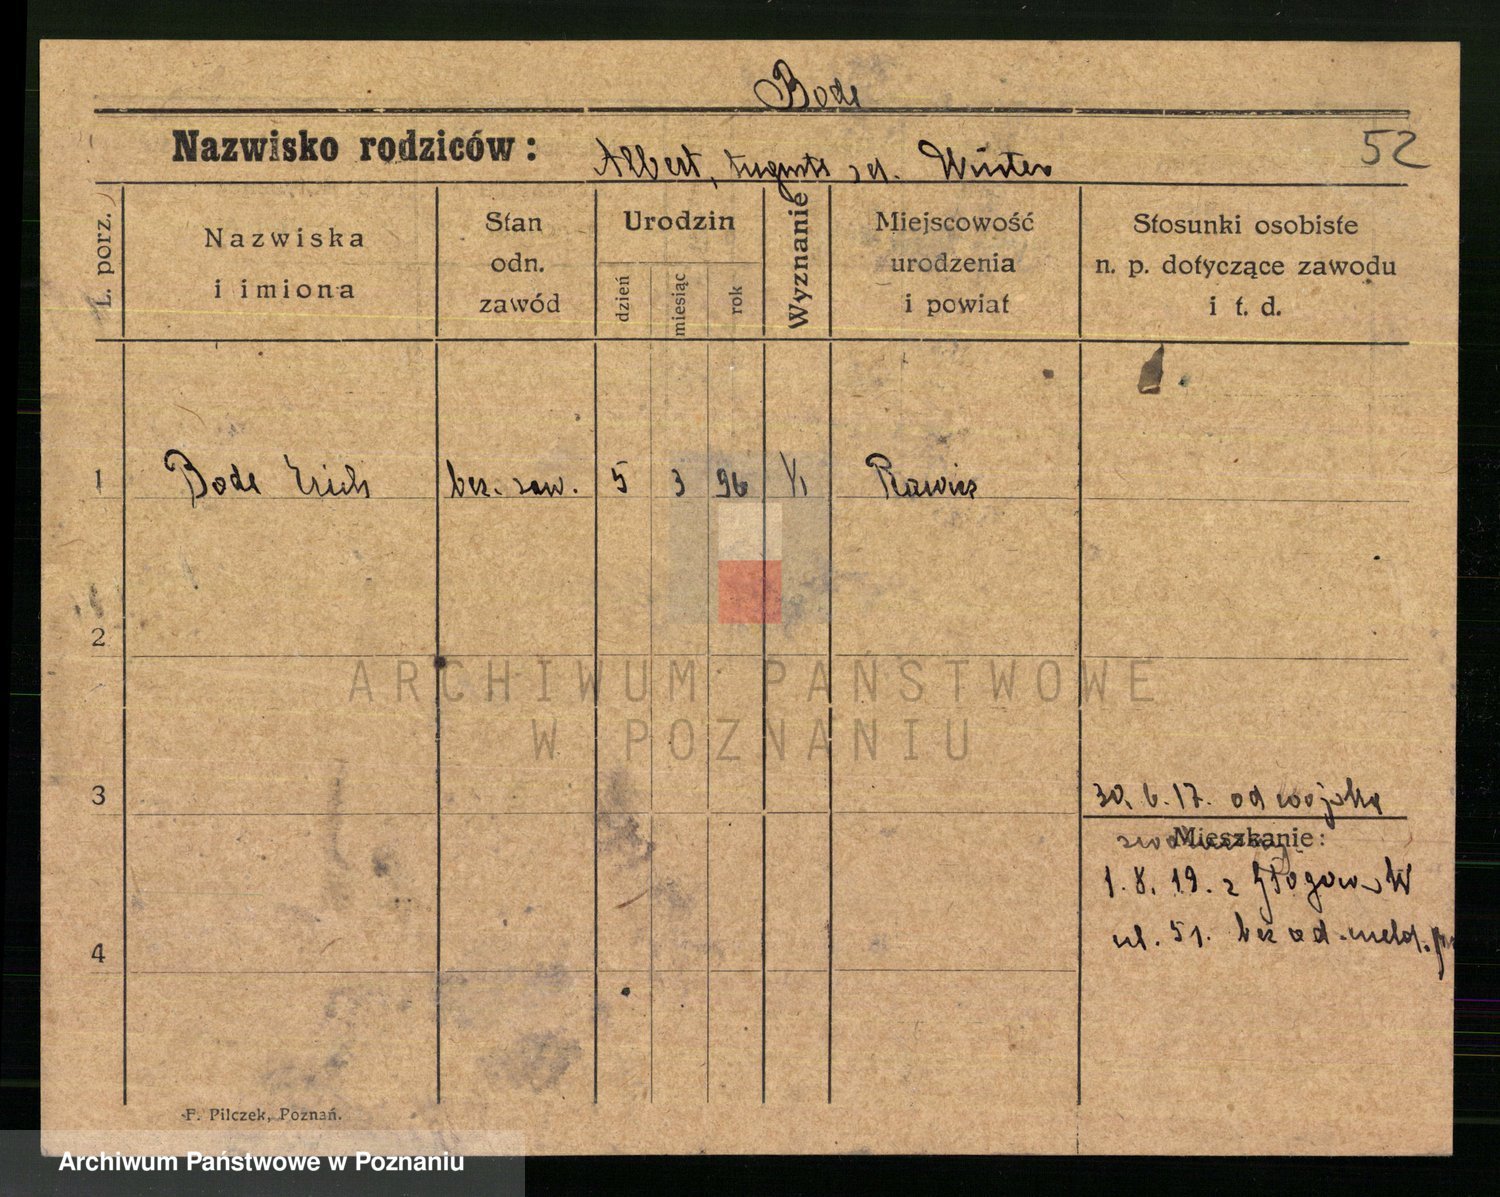 Bode
Nazwisko rodziców: Albert, Augusta zd. Winter
52
L. porz.
Nazwiska
i imiona
Stan
odn.
zawód
Urodzin
dzień
miesiąc
rok
Wyznanie
Miejscowość
urodzenia
i powiat
Stosunki osobiste
n. p. dotyczące zawodu
i t. d.
1 Bode Erich bez. zaw. 5 3 96 Rawicz
2
ARCHIWUM PAŃSTWOWE
W POZNANIU
3
30. 6. 17. od wojska
Mieszkanie:
1. 8. 19. z Głogowa W
ul. 51. bez od. meld.
4
F. Pilczek, Poznań.
Archiwum Państwowe w Poznaniu